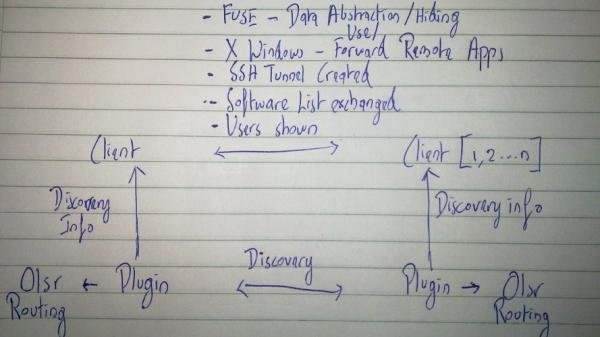 - FUSE - Data Abstraction/Hiding
Use/
- X Windows - Forward Remote Apps
- SSH Tunnel Created
- Software List exchanged
- Users shown
Client
Client [1,2...n]
Discovery
Info
Discovery info
Discovery
Olsr ← Plugin
Plugin → Olsr
Routing
Routing